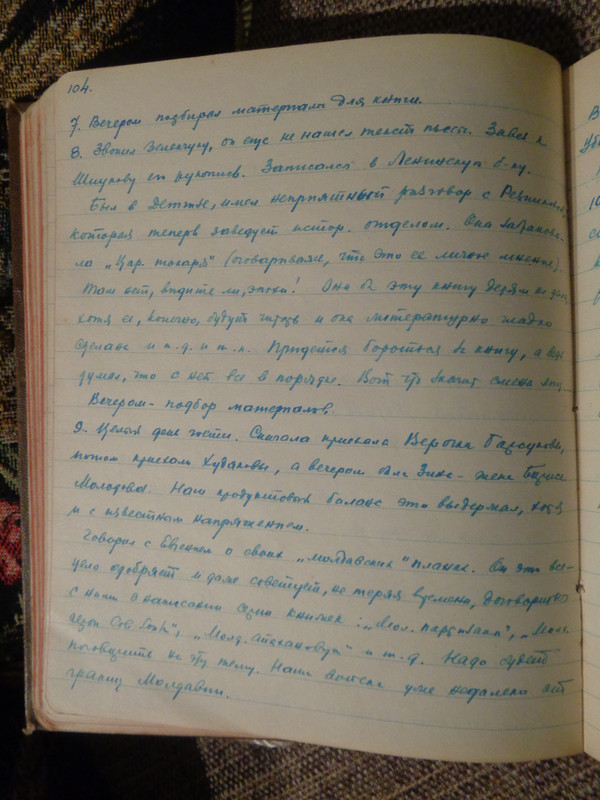 104.
7. Вечером подбирал материалы для книги.
8. Звонил Зеленчуку, он еще не нашел текст пьесы. Завез к
Шмукову ее рукопись. Записался в Ленинскую б-ку.
Был в Детгизе, имел неприятный разговор с
которая теперь заведует истор. отделом. Она забракова-
ла „Цар. токаря" (оговариваясь, что это ее личное мнение).
Там нет, видите ли, эпохи! Она б эту книгу детям не дала,
хотя ее, конечно, будут читать и она литературно гладко
сделана и т.д. и т.п. Придется бороться за книгу, а ведь
думал, что с ней все в порядке. Вот что значит смена
Вечером - подбор материалов.
9. Целый день гости. Сначала приехала Верочка Барсукова,
потом приехали Худяковы, а вечером была Зина - жена Бориса
Молодова. Наш продуктовый баланс это выдержал, хотя
и с известным напряжением.
Говорил с Евгением о своих „молдавских" планах. Он это все-
цело одобряет и даже советует, не теряя времени, договариваться
с ними о написании серии книжек: „Мол. партизаны", „Молд.
Сов. Союза", „Молд. стахановцы" и т.д. Надо будет
поговорить на эту тему. Наши войска уже недалеко от
границ Молдавии.